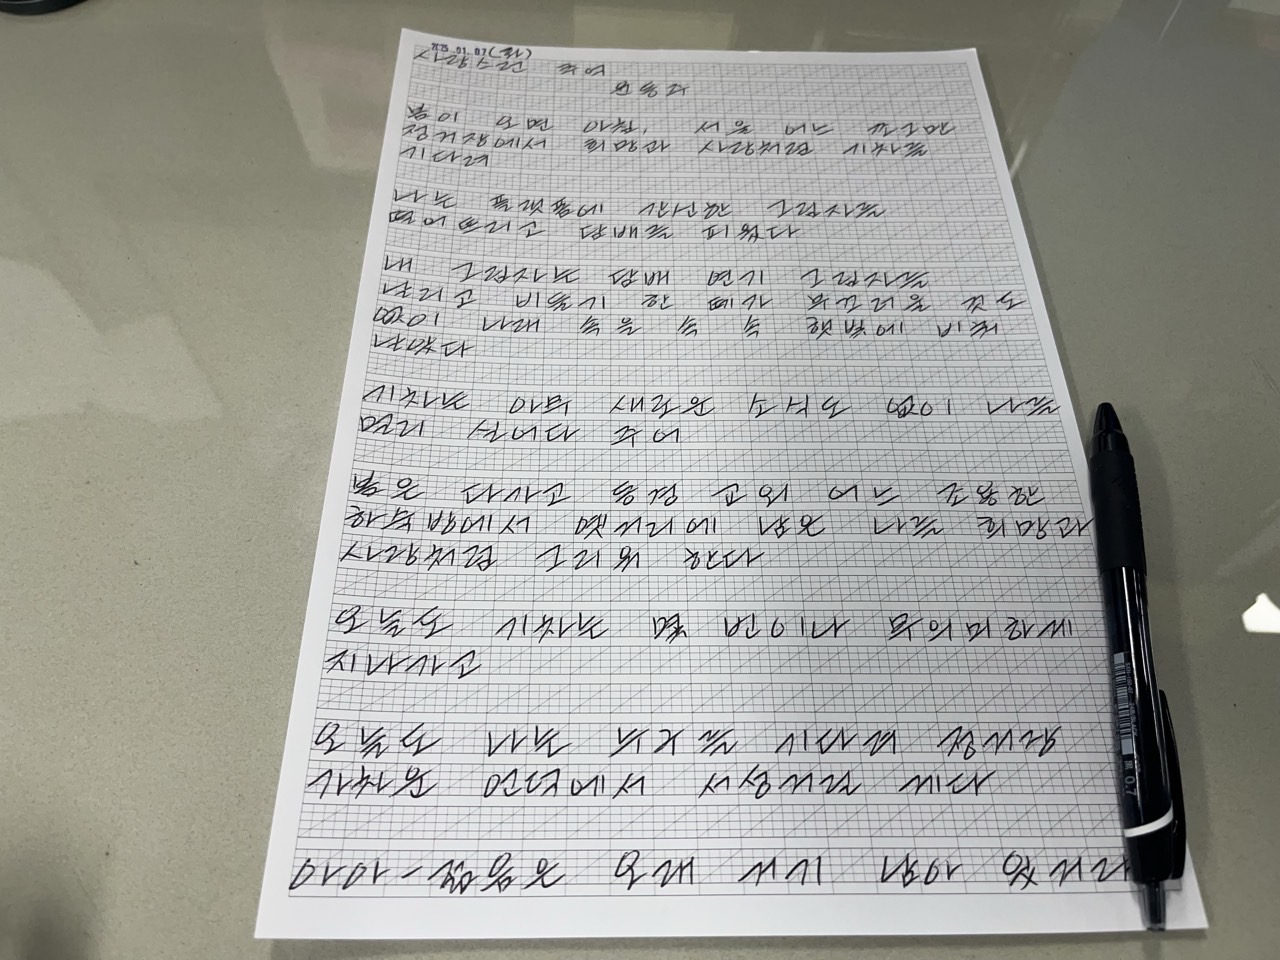 2025.01.07(화)
사랑스런 추억
윤동주
봄이 오면 아침, 서울 어느 쪼그만
정거장에서 희망과 사랑처럼 기차를
기다려
나는 플랫폼에 간신한 그림자를
떨어뜨리고 담배를 피웠다
내 그림자는 담배 연기 그림자를
날리고 비둘기 한 떼가 부끄러울 것도
없이 나래 속을 속 속 햇빛에 비춰
날았다
기차는 아무 새로운 소식도 없이 나를
멀리 실어다 주어
봄은 다가고 동경 교외 어느 조용한
하숙방에서 옛거리에 남은 나를 희망과
사랑처럼 그리워 한다
오늘도 기차는 몇 번이나 무의미하게
지나가고
오늘도 나는 누구를 기다려 정거장
가차운 언덕에서 서성거릴 게다
아아 - 젊음은 오래 거기 남아 있거라
0.7